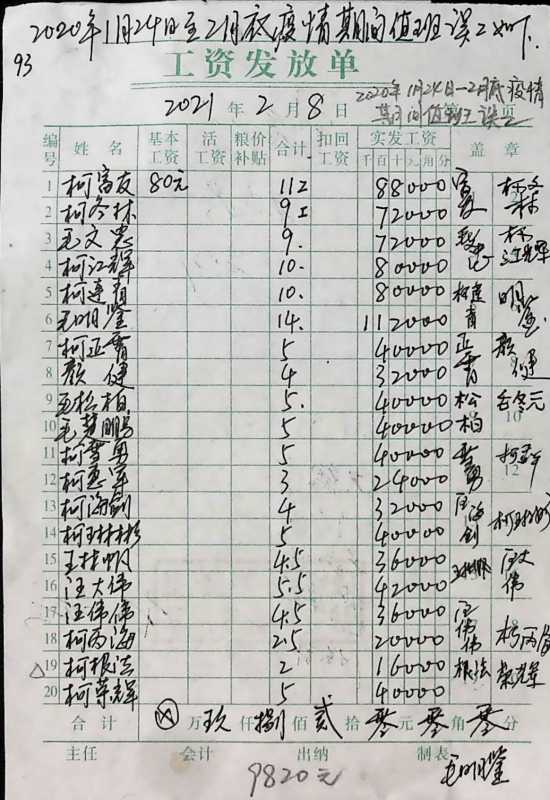 2020年1月24日至2月底疫情期间值班误工如下.
93
工资发放单
2021年2月8日 第 页
2020年1月24日—2月底疫情
期间值班误工
编号 姓名 基本工资 活工资 粮价补贴 合计 扣回工资 实发工资 千百十元角分 盖章
1 柯富友 80元 11工 88000
2 柯冬林 9工 72000
3 毛文忠 9. 72000
4 柯江辉 10. 80000
5 柯建青 10. 80000 柯建青
6 毛明鉴 14. 112000 明鉴
7 柯亚青 5 40000 亚青
8 颜健 4 32000 颜健
9 毛松柏 5. 40000 松柏
10 毛楚鹏 5 40000
11 柯 勇 5 40000
12 柯 军 3 24000
13 柯海 4 32000
14 柯 彬 5 40000
15 王 帆 4.5 36000
16 汪大伟 5.5 42000 汪大伟
17 汪伟伟 4.5 36000 汪伟伟
18 柯丙海 2.5 20000
19 柯根法 2 16000 根法
20 柯荣辉 5 40000 荣辉
合计 ⊗万玖仟捌佰贰拾零元零角零分
主任 会计 出纳 制表
9820元 毛明鉴